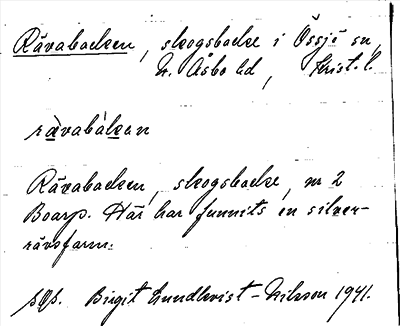 Rävabacken, skogsbacke i Össjö sn,
N. Åsbo hd, Krist. l.
rävabàkan
Rävabacken, skogsbacke, nr 2
Boarp. Här har funnits en silver-
rävsfarm.
Birgit Lundkvist-Nilsson 1941.